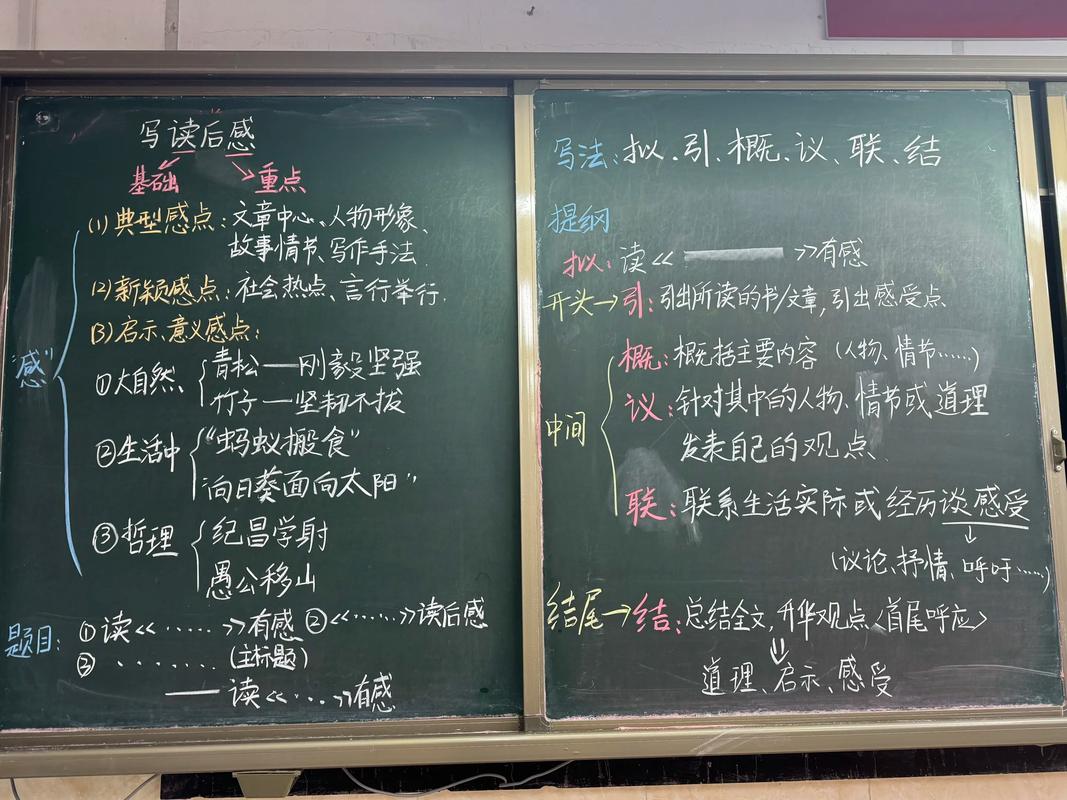 写读后感
基础 重点
“感”
(1)典型感点:文章中心、人物形象、
故事情节、写作手法
(2)新颖感点:社会热点、言行举行.
(3)启示、意义感点:
①大自然、
青松——刚毅坚强
竹子—坚韧不拔
②生活中
“蚂蚁搬食”
向日葵面向太阳”
③哲理
纪昌学射
愚公移山
题目:①读《……》有感 ②《……》读后感
③ ……..(主标题)
——读《…..》有感
写法:拟、引、概、议、联、结
提纲
拟:读《 》有感
开头→引:引出所读的书/文章,引出感受点
中间
概:概括主要内容(人物、情节……)
议:针对其中的人物、情节或道理
发表自己的观点
联:联系生活实际或经历谈感受
(议论、抒情、呼吁……)
结尾→结:总结全文,升华观点〈首尾呼应〉
道理、启示、感受